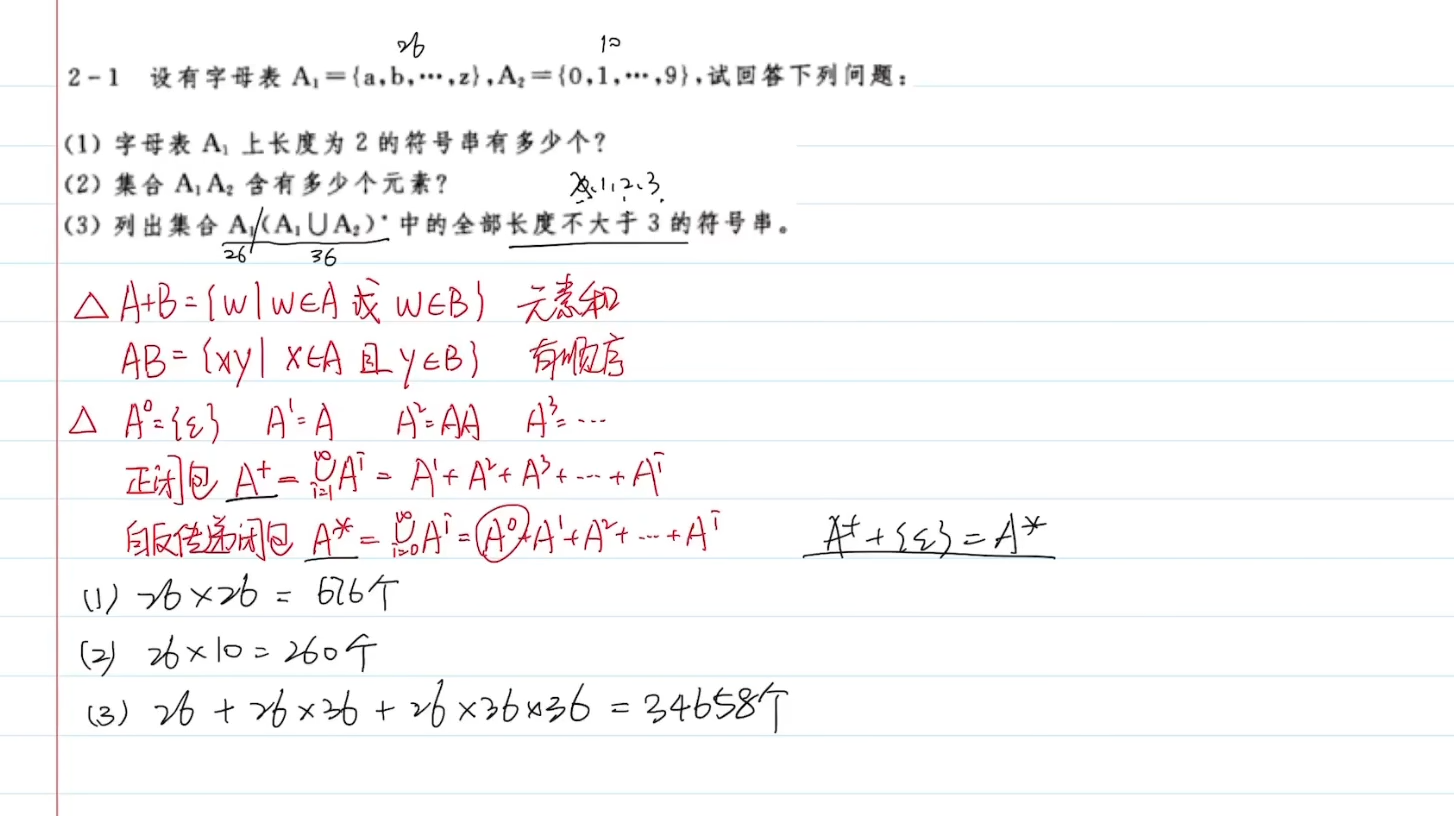 26 10
2-1 设有字母表 A₁={a,b,…,z},A₂={0,1,…,9},试回答下列问题:
(1) 字母表 A₁ 上长度为 2 的符号串有多少个?
(2) 集合 A₁A₂ 含有多少个元素?
1、2、3
(3) 列出集合 A₁(A₁∪A₂)* 中的全部长度不大于 3 的符号串。
26 36
△ A+B={w|w∈A 或 w∈B} 元素和
AB={xy|x∈A 且 y∈B} 有顺序
△ A⁰={ε} A¹=A A²=AA A³=…
正闭包 A⁺=∪_{i=1}^{∞}Aⁱ=A¹+A²+A³+…+Aⁱ
自反传递闭包 A*=∪_{i=0}^{∞}Aⁱ=A⁰+A¹+A²+…+Aⁱ A⁺+{ε}=A*
(1) 26×26=676个
(2) 26×10=260个
(3) 26+26×36+26×36×36=34658个